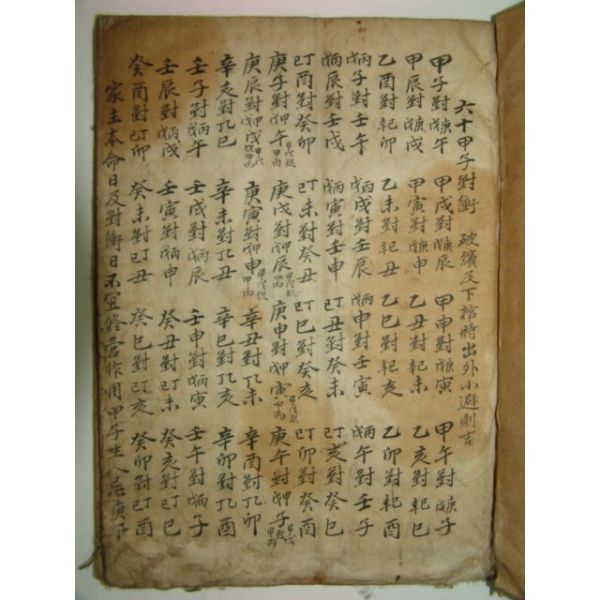 六十甲子對衝 破殯及下棺時出外小避則吉
甲子對戊庚午 甲戌對戊庚辰 甲申對戊庚寅 甲午對戊庚子
甲辰對戊庚戌 甲寅對戊庚申 乙丑對己乙未 乙亥對己乙巳
乙酉對己乙卯 乙未對己乙丑 乙巳對己乙亥 乙卯對己乙酉
戊丙子對壬午 戊丙戌對壬辰 戊丙申對壬寅 戊丙午對壬子
戊丙辰對壬戌 戊丙寅對壬申 己丁丑對癸未 己丁亥對癸巳
己丁酉對癸卯 己丁未對癸丑 己丁巳對癸亥 己丁卯對癸酉
庚子對戊甲午 庚戌對戊甲辰 庚申對戊甲寅 庚午對戊甲子
庚辰對戊甲戌 庚寅對戊甲申 辛丑對己乙未 辛酉對己乙卯
辛亥對己乙巳 辛未對己乙丑 辛巳對己乙亥 辛卯對己乙酉
壬子對戊丙午 壬戌對戊丙辰 壬申對戊丙寅 壬午對戊丙子
壬辰對戊丙戌 壬寅對戊丙申 癸丑對己丁未 癸亥對己丁巳
癸酉對己丁卯 癸未對己丁丑 癸巳對己丁亥 癸卯對己丁酉
家主本命日及對衝日不宜修營作用甲子生人忌庚午